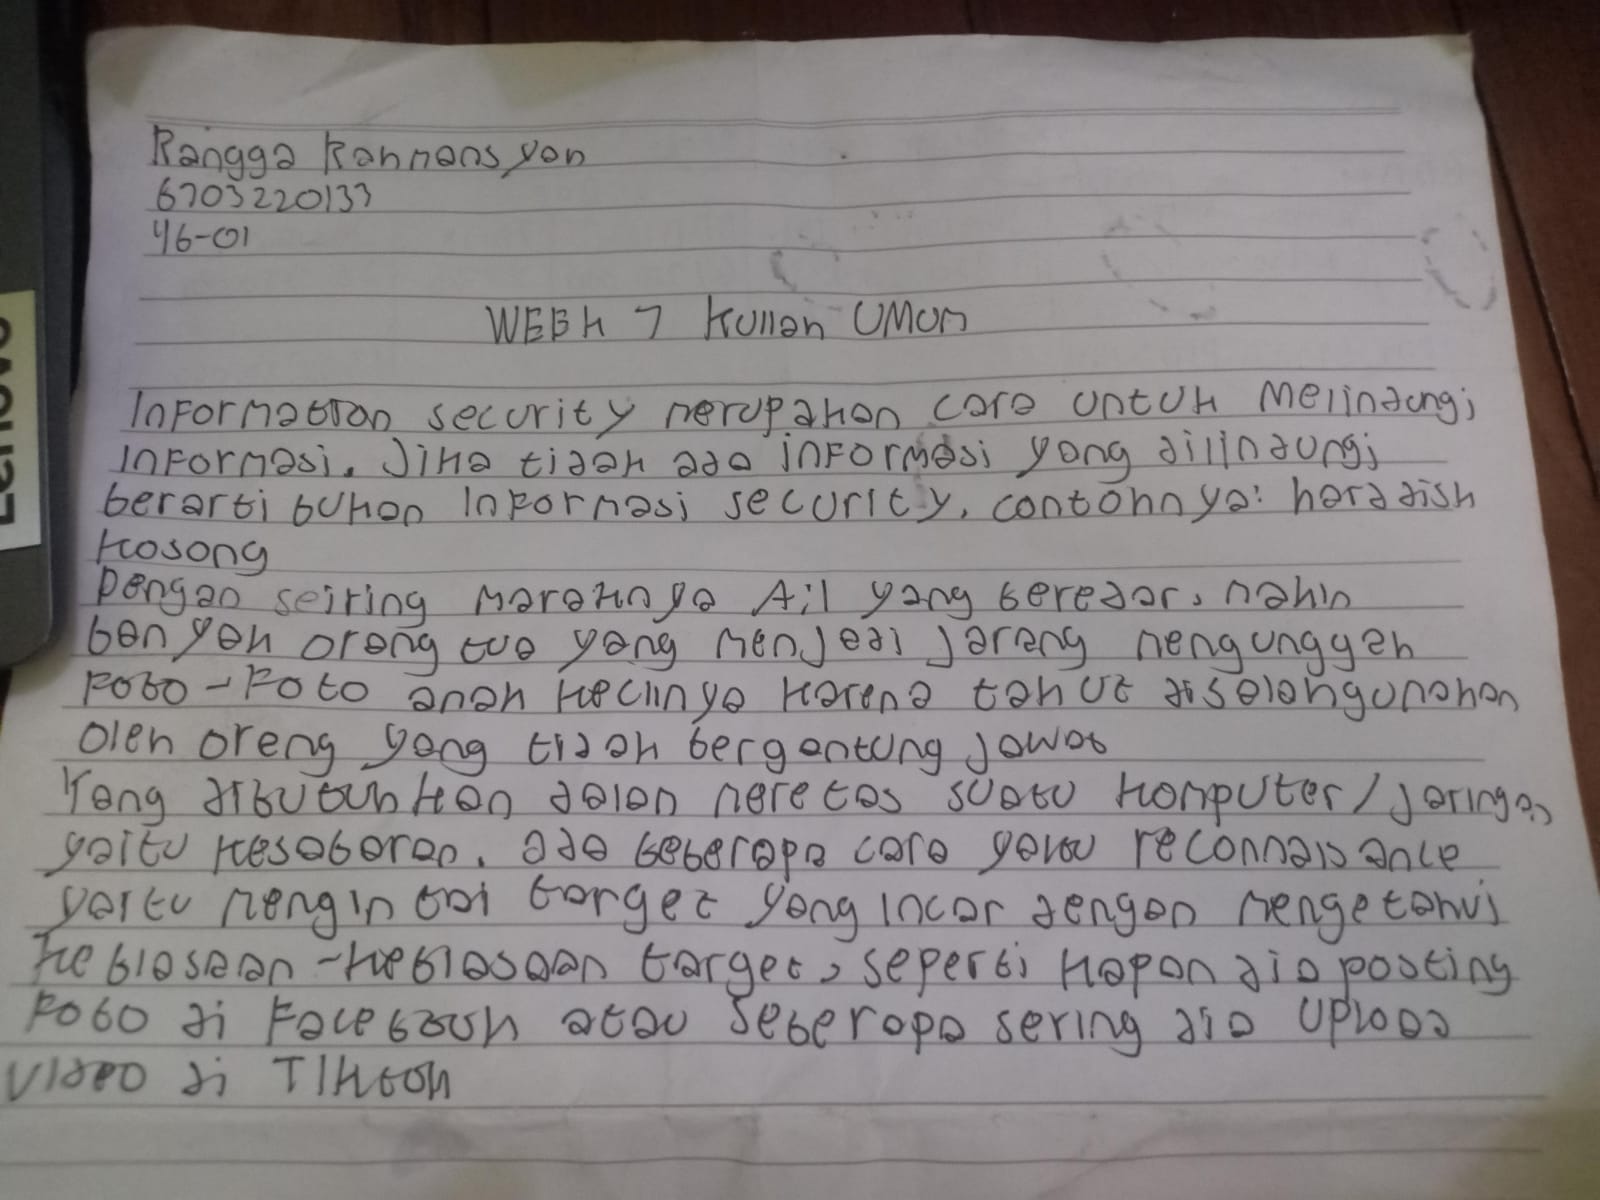 Rangga Rahmansyah
6703220133
46-01
WEEK 7 Kuliah UMUM
Information security merupakan cara untuk Melindungi
informasi. Jika tidak ada informasi yang dilindungi
berarti bukan Informasi security, contohnya: harddisk
kosong
Dengan seiring maraknya A.I yang beredar, makin
banyak orang tua yang menjadi jarang mengunggah
foto-foto anak kecilnya karena takut disalahgunakan
oleh orang yang tidak bergantung jawab
Yang dibutuhkan dalam meretas suatu komputer/jaringan
yaitu kesabaran. ada beberapa cara yaitu reconnaissance
yaitu mengintai target yang incar dengan mengetahui
kebiasaan-kebiasaan target, seperti kapan dia posting
foto di Facebook atau Seberapa sering dia upload
video di Tiktok
Lenovo